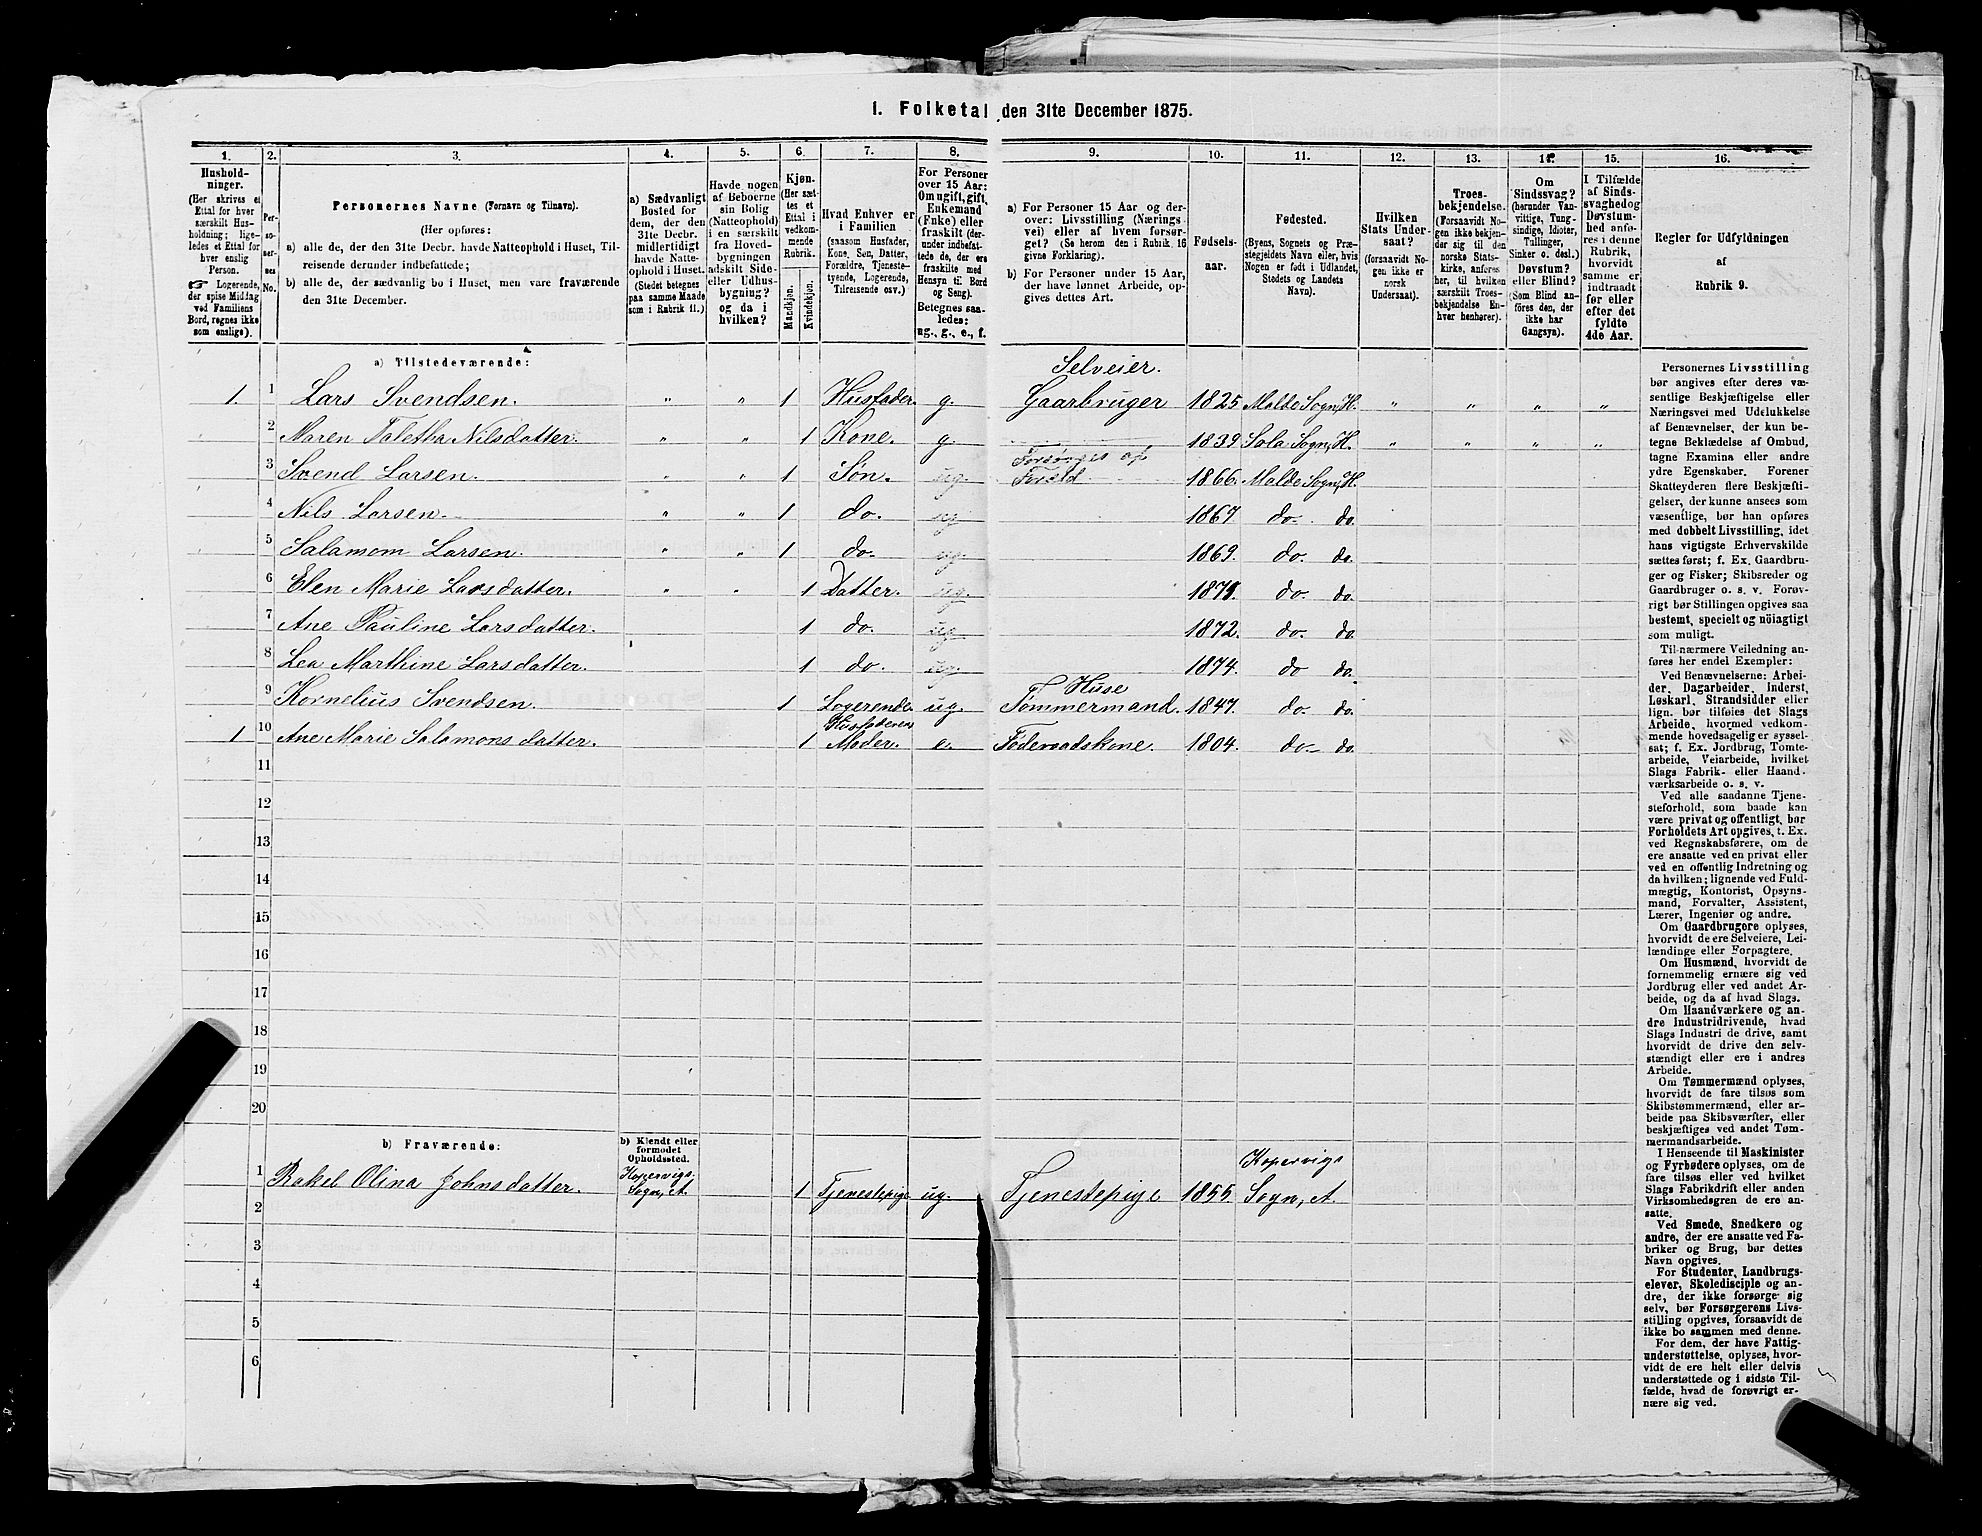 1. Folketal den 31te December 1875.
1. 2. 3. 4. 5. 6. 7. 8. 9. 10. 11. 12. 13. 14. 15. 16.
Husholdninger.
(Her skrives et
Ettal for hver
særskilt Husholdning; ligeledes et Ettal for
hver enslig
Person.
☞ Logerende,
der spise Middag
ved Familiens
Bord, regnes ikke
som enslige).
Personernes No.
Personernes Navne (Fornavn og Tilnavn).
(Her opføres:
a) alle de, der den 31te Decbr. havde Natteophold i Huset, Tilreisende derunder indbefattede;
b) alle de, der sædvanlig bo i Huset, men vare fraværende
den 31te December.
a) Sædvanligt
Bosted for
dem, der den
31te Decbr.
midlertidigt
havde Natteophold i Huset.
(Stedet betegnes
paa samme Maade
som i Rubrik 11.)
Havde nogen
af Beboerne
sin Bolig
(Natteophold)
i en særskilt
fra Hovedbygningen
adskilt Side-
eller Udhusbygning?
og da i
hvilken?
Kjøn.
(Her sættes et
Ettal i
vedkommende
Rubrik.
Mandkjøn.
Kvindekjøn.
Hvad Enhver er
i Familien
(saasom Husfader,
Kone, Søn, Datter,
Forældre, Tjenestetyende, Logerende,
Tilreisende osv.)
For Personer
over 15 Aar:
Om ugift, gift,
Enkemand
(Enke) eller
fraskilt (derunder indbefattede de, der ere
fraskilte med
Hensyn til Bord
og Seng).
Betegnes saaledes:
ug., g., e., f.
a) For Personer 15 Aar og derover: Livsstilling (Næringsvei) eller af hvem forsørget? (Se herom den i Rubrik 16
givne Forklaring).
b) For Personer under 15 Aar,
der have lønnet Arbeide, opgives dettes Art.
Fødselsaar.
Fødested.
(Byens, Sognets og Præstegjeldets Navn eller, hvis
Nogen er født i Udlandet,
Stedets og Landets
Navn).
Hvilken
Stats Undersaat?
(forsaavidt Nogen ikke er
norsk
Undersaat).
Troesbekjendelse.
(Forsaavidt Nogen ikke bekjender sig til den
norske Statskirke, anføres
her, til hvilken
særskilt Troesbekjendelse Enhver henhører).
Om
Sindssvag?
(herunder Vanvittige, Tungsindige, Idioter,
Tullinger,
Sinker o. desl.)
Døvstum?
eller Blind?
(Som Blind anføres den, der
ikke har
Gangsyn).
I Tilfælde
af Sindssvaghed og
Døvstumhed anføres i denne
Rubrik,
hvorvidt
samme er
indtraadt
før eller
efter det
fyldte
4de Aar.
Regler for Udfyldningen
af
Rubrik 9.
a) Tilstedeværende:
Selveier.
1. 1 Lars Svendsen. " " 1 Husfader. g. Gaarbruger 1825 Malde Sogn, H. " " " "
2 Maren Taletha Nilsdatter. " " 1 Kone. g. 1839 Sola Sogn, H. " " " "
Forsørges af
3 Svend Larsen. " " 1 Søn. ug. Foreld 1866. Malde Sogn, H.
4 Nils Larsen. " " 1 do. ug 1867. do. do.
5 Salamom Larsen. " " 1 do. ug. 1869. do do.
6 Elen Marie Larsdatter. " " 1 Datter. ug. 1871. do. do.
7 Ane Pauline Larsdatter. 1 do. ug 1872. do. do.
8 Lea Marthine Larsdatter. 1 do. ug. 1874. do do.
Huse
9 Kornelius Svendsen. 1 Logerende. ug. Tømmermand. 1847. do. do.
Husfaderens
1 10 Ane Marie Salamons datter. 1 Moder. e. Føderaadskone. 1804. do. do.
11
12
13
14
15
16
17
18
19
20
b) Fraværende:
b) Kjendt eller
formodet
Opholdssted.
Kopervigs Kopervigs
1 Rakel Olina Johnsdatter. Sogn, A. 1 Tjenestepige ug. Tjenestepige 1855. Sogn, A.
2
3
4
5
6
Personernes Livsstilling
bør angives efter deres væsentlige Beskjæftigelse eller
Næringsvei med Udelukkelse
af Benævnelser, der kun betegne Beklædelse af Ombud,
tagne Examina eller andre
ydre Egenskaber. Forener
Skatteyderen flere Beskjæftigelser, der kunne ansees som
væsentlige, bør han opføres
med dobbelt Livsstilling, idet
hans vigtigste Erhvervskilde
sættes først; f. Ex. Gaardbruger og Fisker; Skibsreder og
Gaardbruger o. s. v. Forøvrigt bør Stillingen opgives saa
bestemt, specielt og nöiagtigt
som muligt.
Til nærmere Veiledning anføres her endel Exempler:
Ved Benævnelserne: Arbeider, Dagarbeider, Inderst,
Løskarl, Strandsidder eller
lign. bør tilføies det Slags
Arbeide, hvormed vedkommende hovedsagelig er sysselsat; f. Ex. Jordbrug, Tomtearbeide, Veiarbeide, hvilket
Slags Fabrik- eller Haandværksarbeide o. s. v.
Ved alle saadanne Tjenesteforhold, som baade kan
være privat og offentligt, bør
Forholdets Art opgives, t. Ex.
ved Regnskabsførere, om de
ere ansatte ved en privat eller
ved en offentlig Indretning og
da hvilken; lignende ved Fuldmægtig, Kontorist, Opsynsmand, Forvalter, Assistent,
Lærer, Ingeniør og andre.
Om Gaardbrugere oplyses,
hvorvidt de ere Selveiere, Leilændinge eller Forpagtere.
Om Husmænd, hvorvidt de
fornemmelig ernære sig ved
Jordbrug eller ved andet Arbeide, og da af hvad Slags.
Om Haandværkere og andre Industridrivende, hvad
Slags Industri de drive, samt
hvorvidt de drive den selvstændigt eller ere i andres
Arbeide.
Om Tømmermænd oplyses,
hvorvidt de fare tilsøs som
Skibstømmermænd, eller arbeide paa Skibsværfter, eller
beskjæftiges ved andet Tømmermandsarbeide.
I Henseende til Maskinister
og Fyrbødere oplyses, om de
fare tilsøs eller ved hvilket
Slags Fabrikdrift eller anden
Virksomhedsgren de ere ansatte.
Ved Smede, Snedkere og
andre, der ere ansatte ved Fabriker og Brug, bør dettes
Navn opgives.
For Studenter, Landbrugselever, Skoledisciple og andre, der ikke forsørge sig
selv, bør Forsørgerens Livsstilling opgives, forsaavidt de
ikke bo sammen med denne.
For dem, der have Fattigunderstøttelse, oplyses, hvorvidt de ere helt eller delvis
understøttede og i sidste Tilfælde, hvad de forøvrigt ernære sig ved.